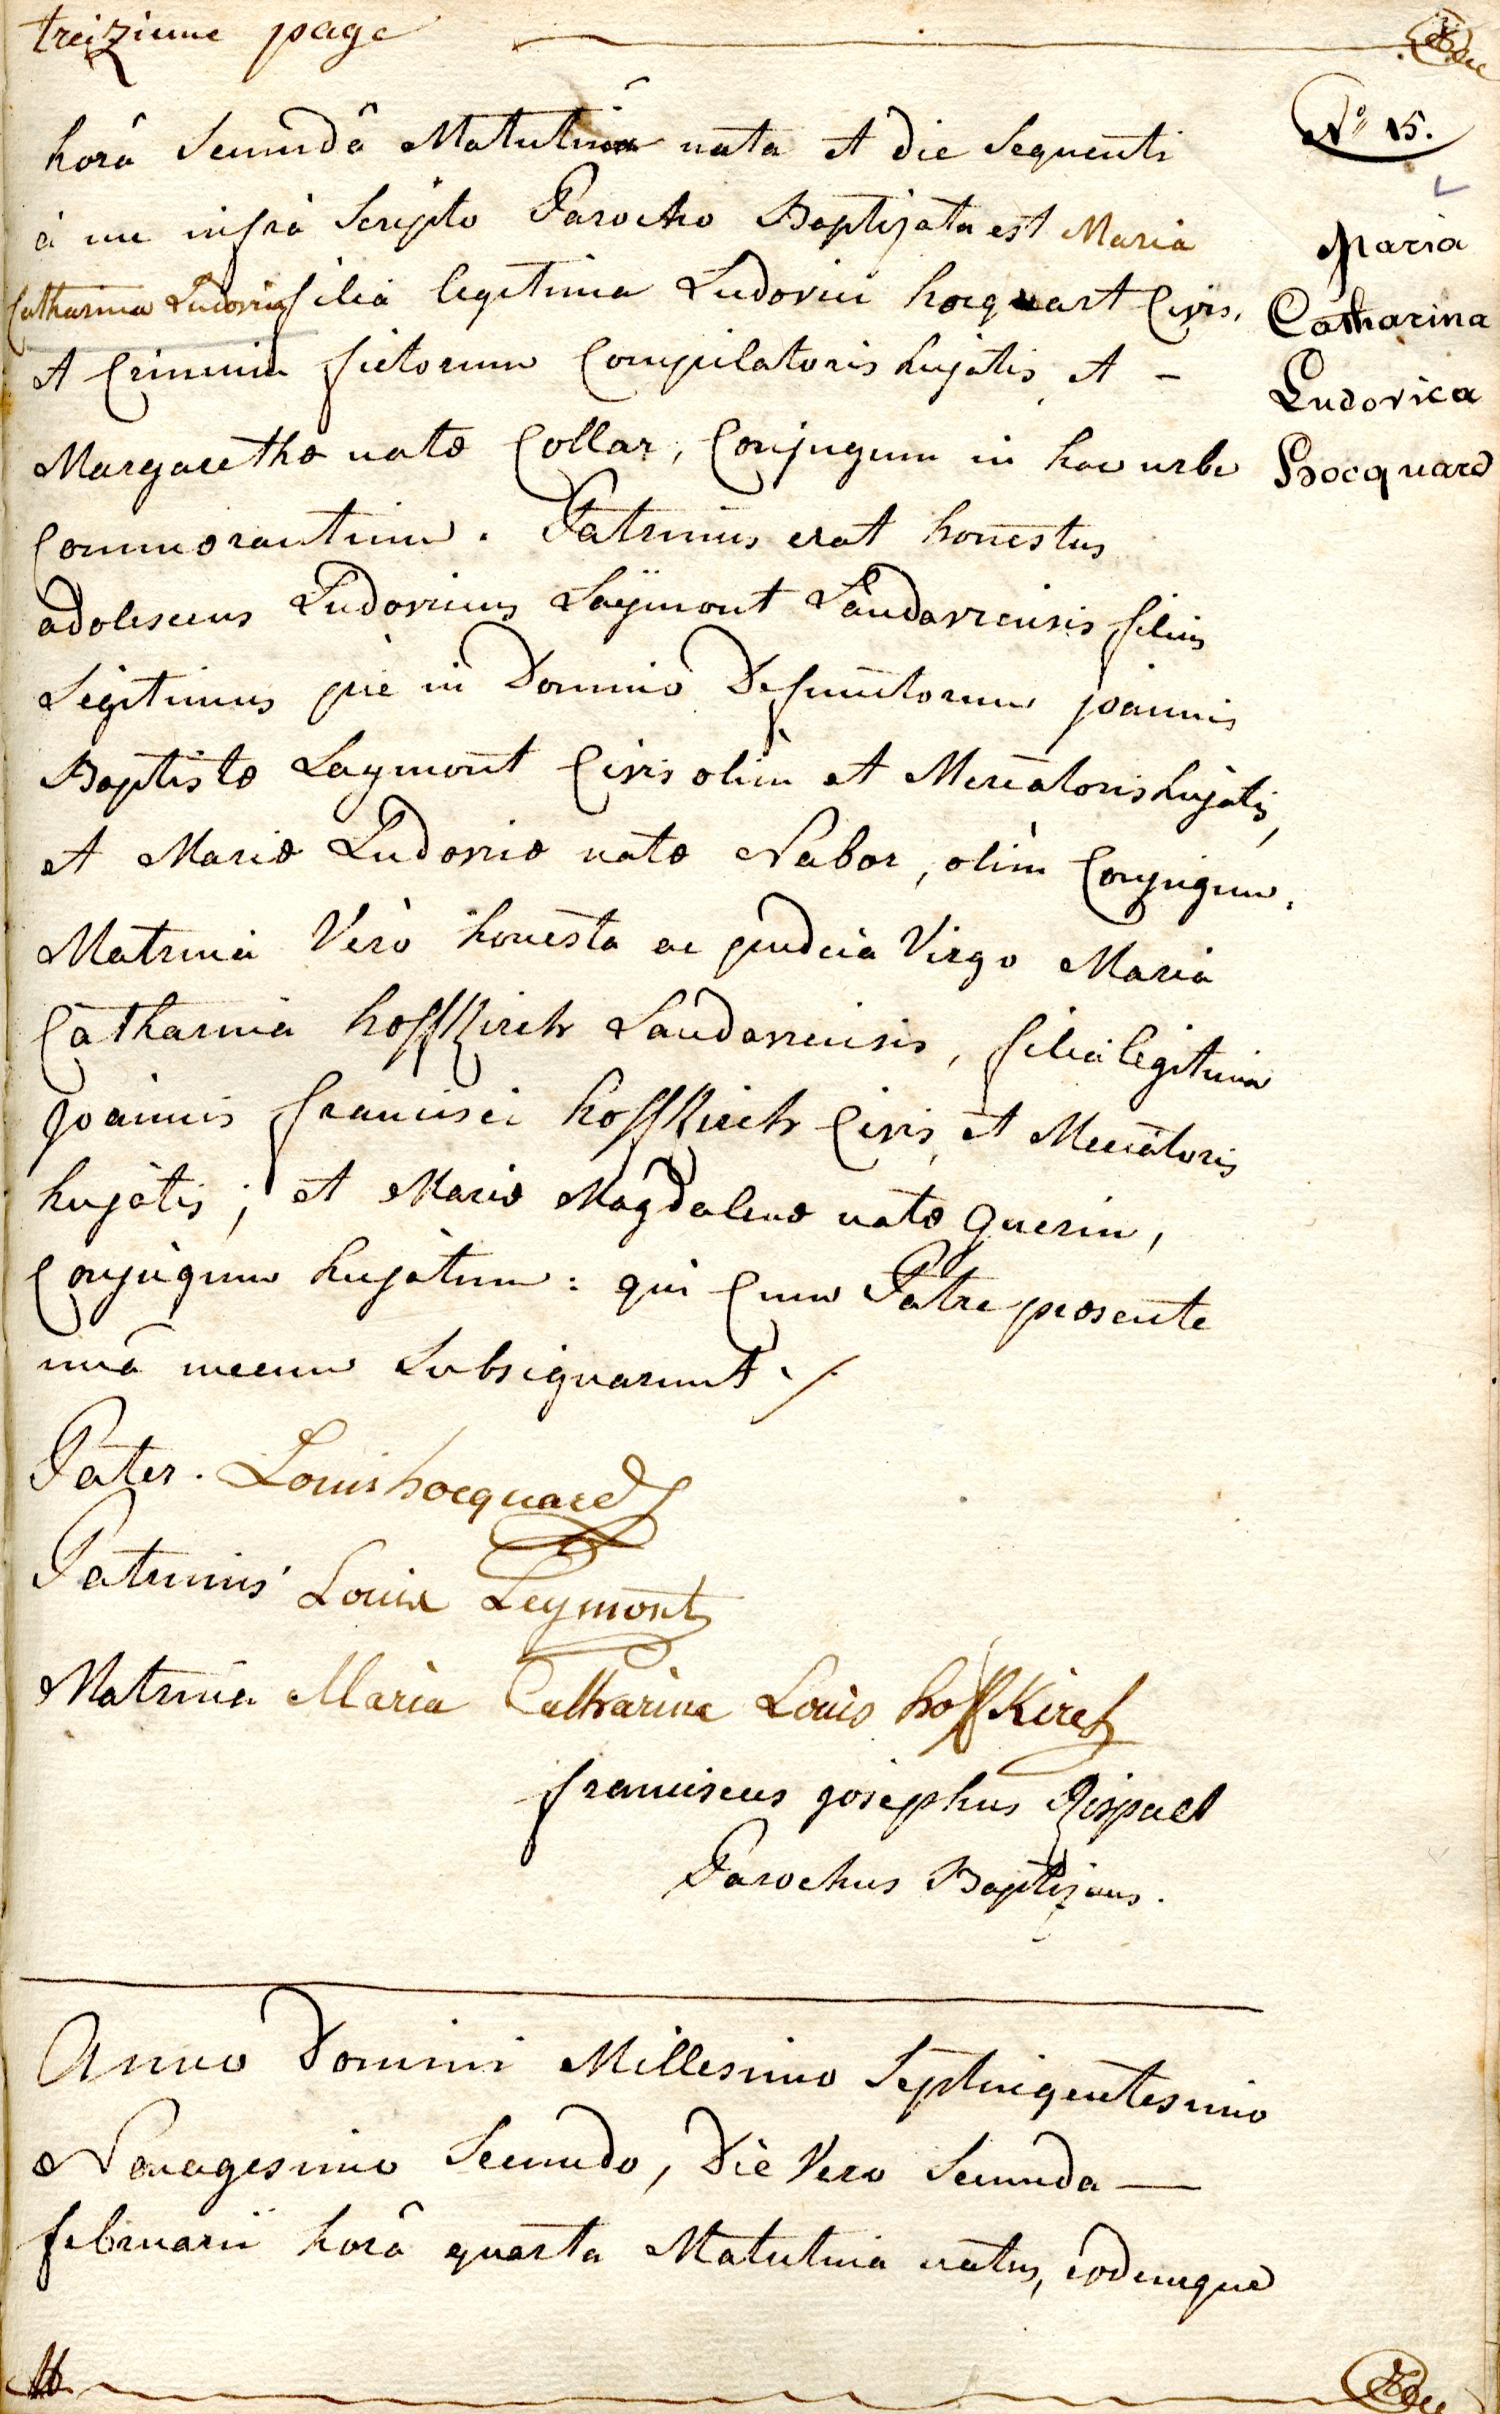 treizieme page
N.º 15.
horâ secundâ Matutinâ nata et die sequenti
à me infrà scripto Parocho Baptizata est Maria
Catharina Ludovica filia legitima Ludovici hocquart Civis,
et Compilatoris hujatis, et -
Margarethæ natæ Collar, Conjugum in hac urbe
Commorantium. Patrinus erat honestus
adolescens Ludovicus Laÿmont Landaviensis filius
Legitimus piè in Domino Defunctorum joannis
Baptistæ Laymont Civis olim et Mercatoris hujatis,
et Mariæ Ludovicæ natæ Nabor, olim Conjugum.
Matrina Verò honesta ac pudica Virgo Maria
Catharina hoffkirch Landaviensis, filia legitima
joannis francisci hoffkirch Civis, et Mercatoris
hujatis; et Mariæ Magdalenæ natæ Guerin,
Conjugum hujatum: qui Cum Patre præsente
unà mecum Subsignarunt ./.
Maria
Catharina
Ludovica
Hocquard
Pater. Louis hocquard
Patrinus Louis Leymont
Matrina Maria Catharina Louis hoffKirch
franciscus josephus Rispact
Parochus Baptizans.
Anno Domini Millesimo Septingentesimo
Nonagesimo Secundo, Die Vero Secunda —
februarii horâ quarta Matutina natus, eodemque